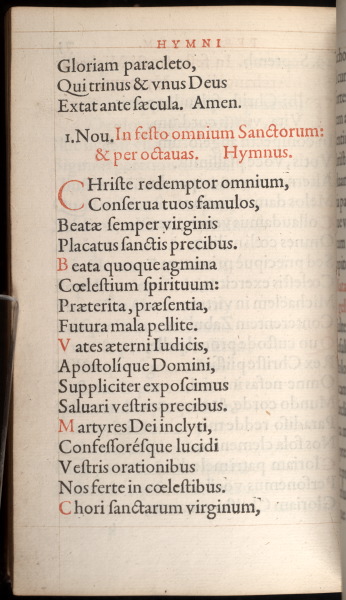 HYMNI
Gloriam paracleto,
Qui trinus & vnus Deus
Extat ante sæcula. Amen.
1. Nou. In festo omnium Sanctorum:
& per octauas. Hymnus.
CHriste redemptor omnium,
Conserua tuos famulos,
Beatæ semper virginis
Placatus sanctis precibus.
Beata quoque agmina
Cœlestium spirituum:
Præterita, præsentia,
Futura mala pellite.
Vates æterni Iudicis,
Apostolíque Domini,
Suppliciter exposcimus
Saluari vestris precibus.
Martyres Dei inclyti,
Confessorésque lucidi
Vestris orationibus
Nos ferte in cœlestibus.
Chori sanctarum virginum,